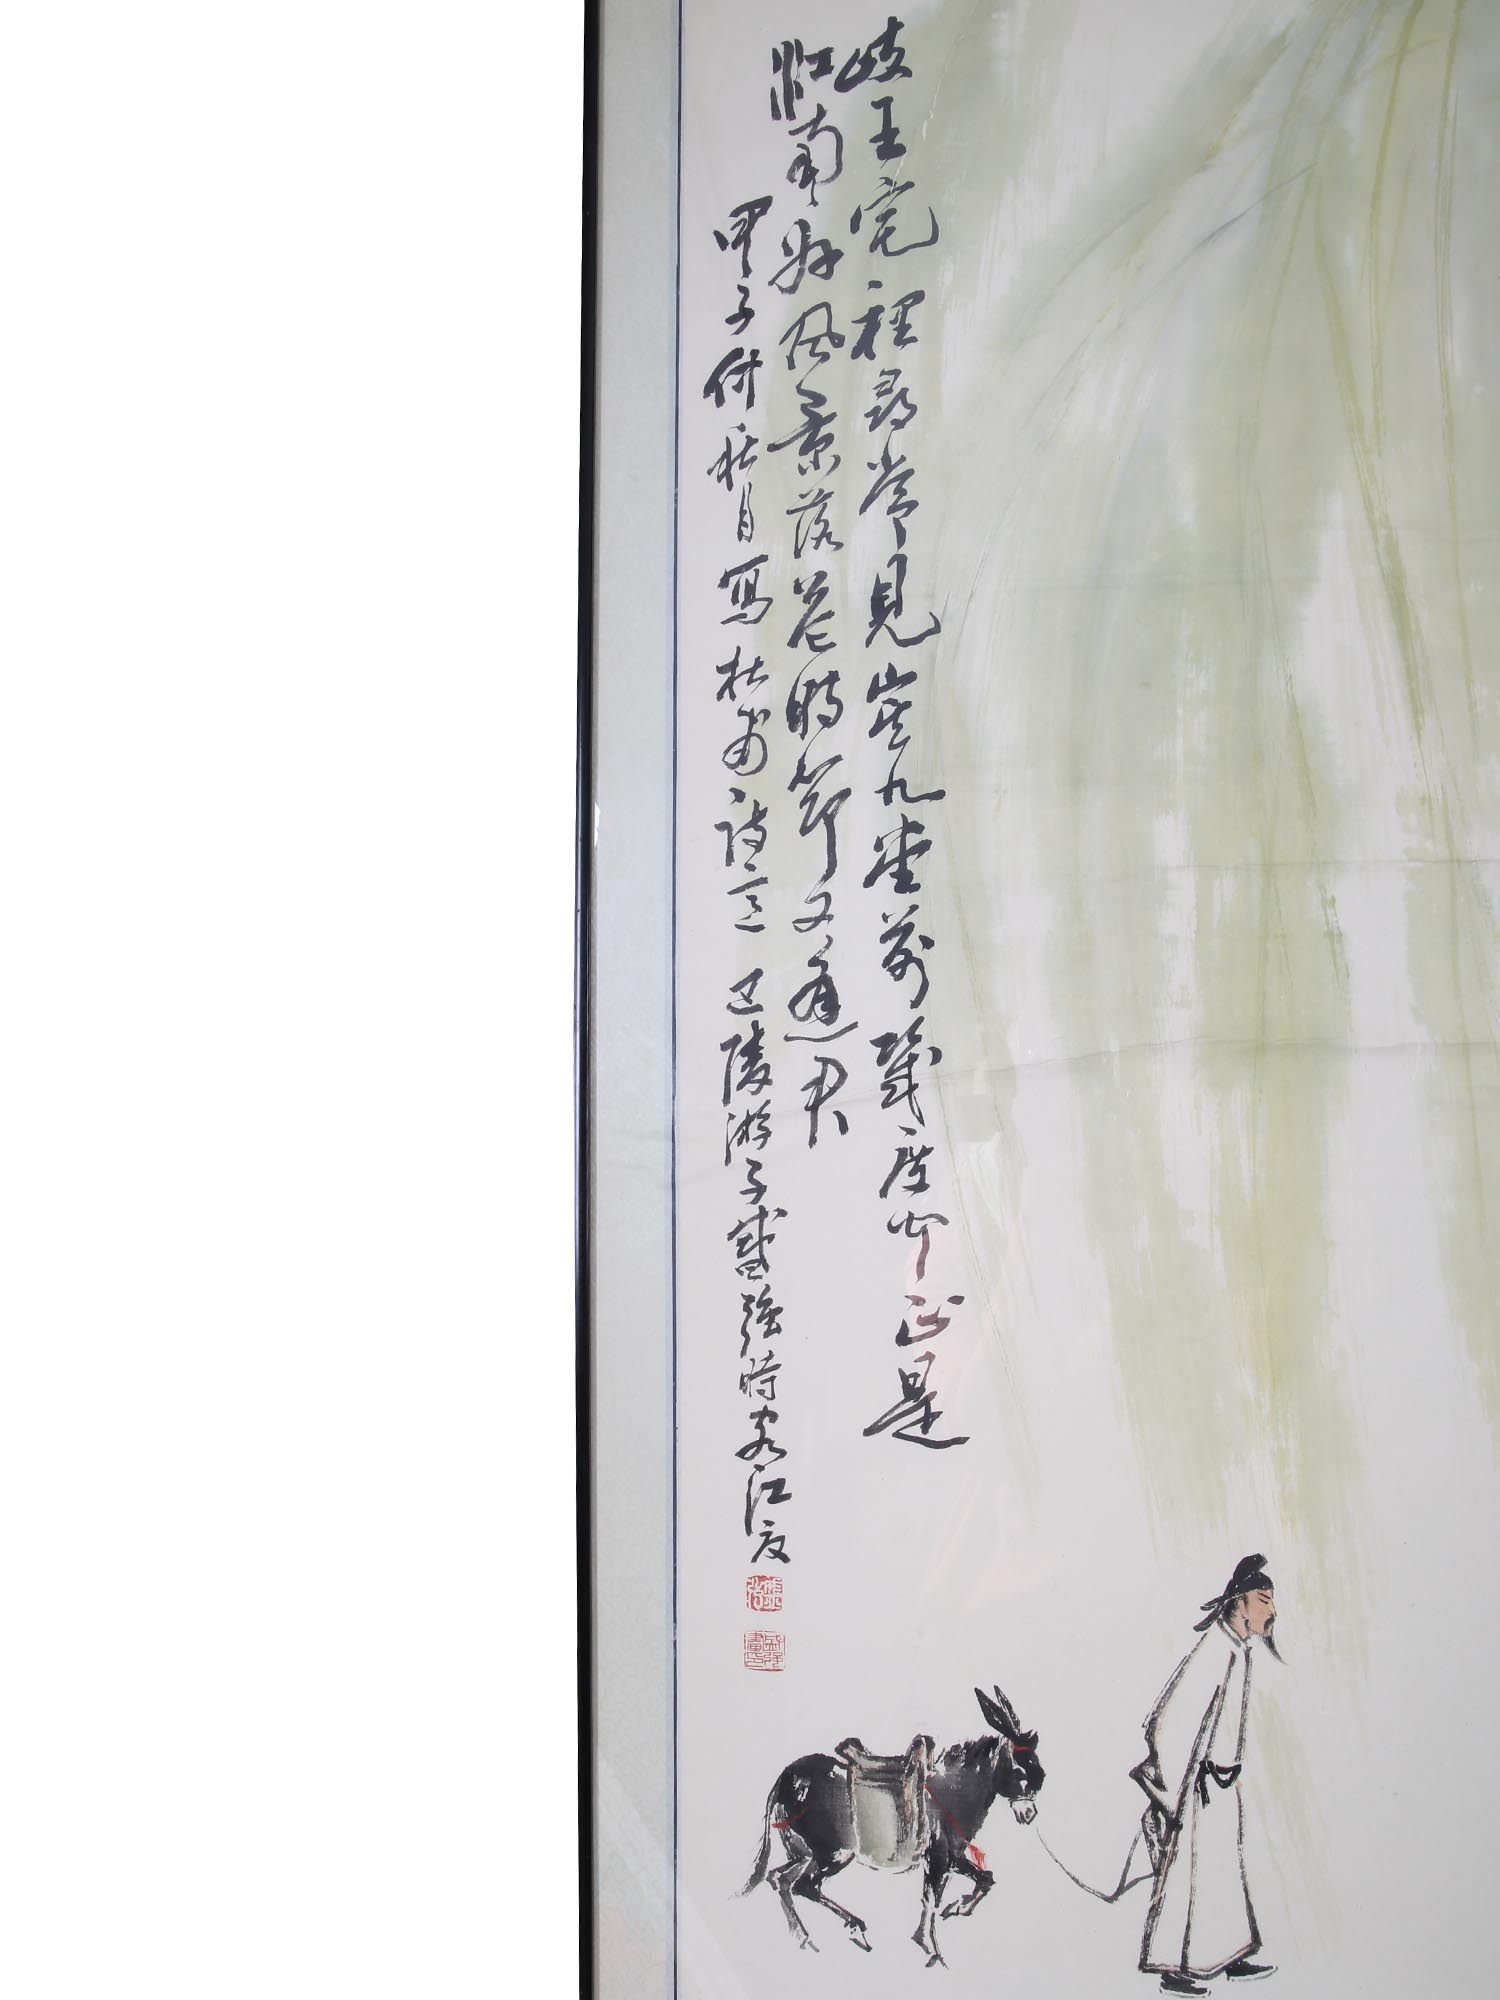 岐王宅裡尋常見崔九堂前幾度聞正是
江南好风景落花時節又逢君
甲子仲秋月寫杜甫詩意 巴陵游子盛強時客江夏
盛强畫印